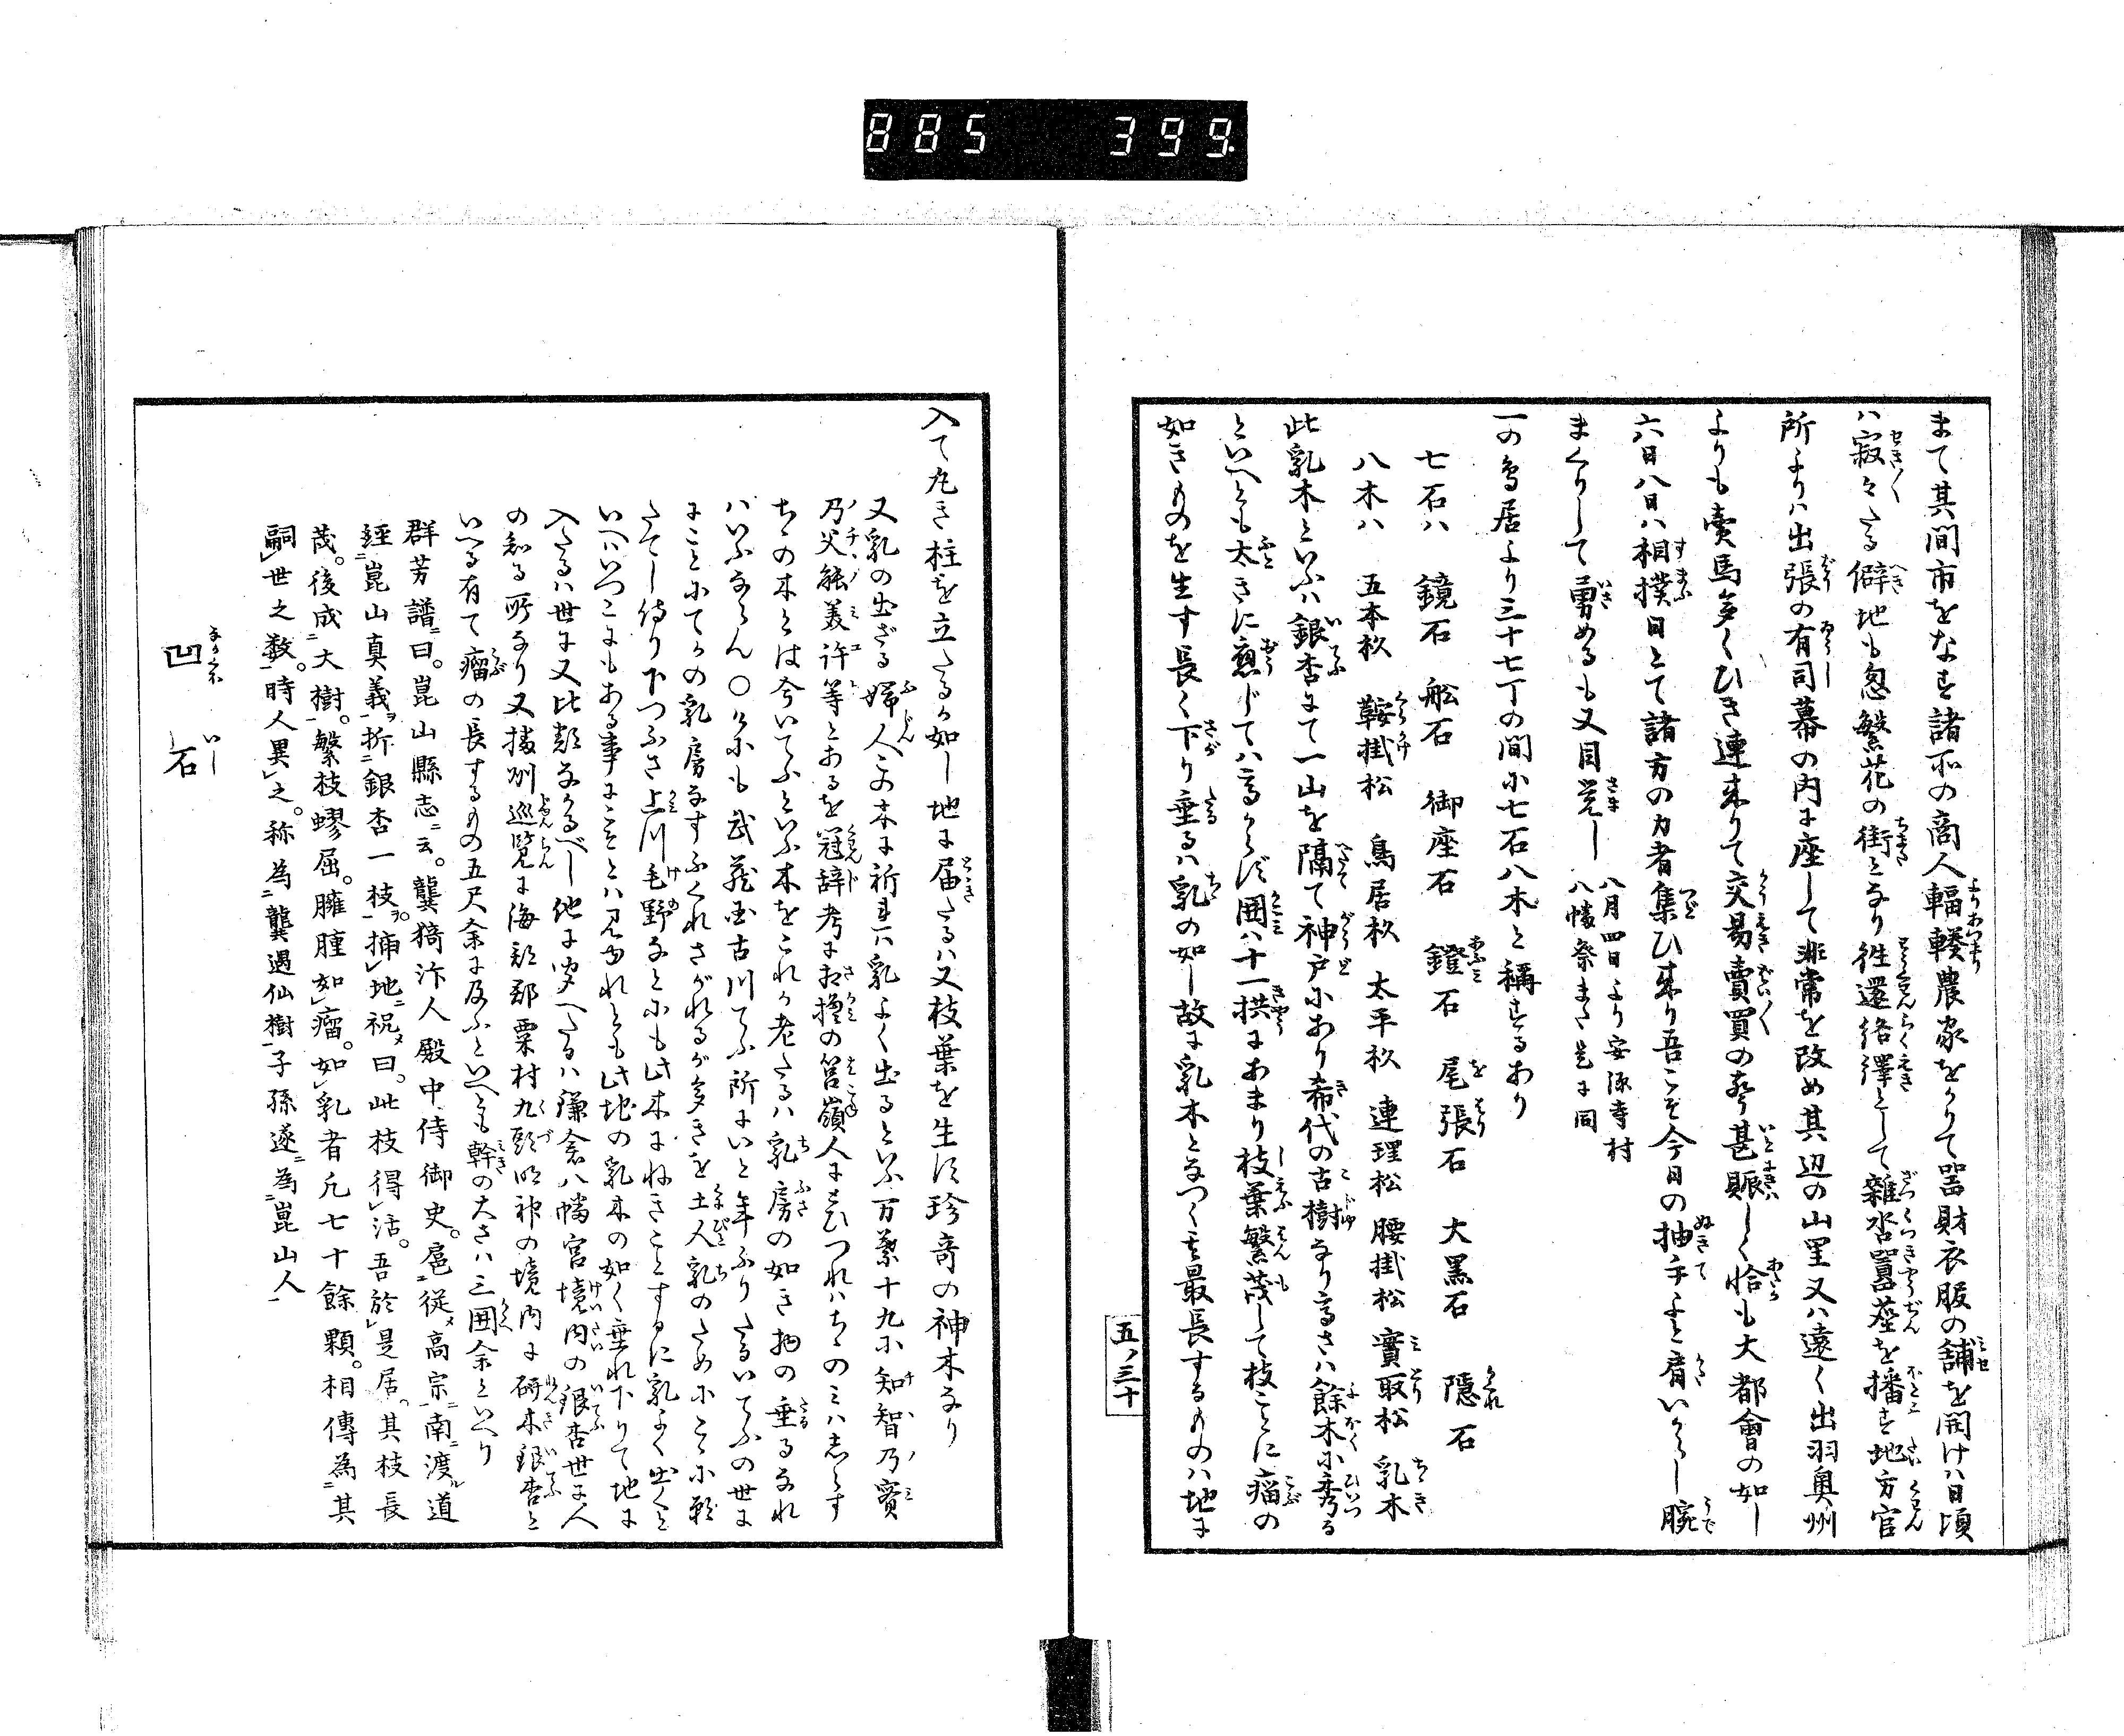 885 399.
まて其間市をなせは諸所の商人輻輳農家をかりて噐財衣服の舗を開けハ日頃
ハ寂々たる僻地も忽繁花の街となり徃還絡繹として雜沓囂塵を播せは地方官
所よりハ出張の有司幕の内に座して非常を改め其辺の山里又ハ遠く出羽奥州
よりも賣馬多くひき連来りて交易賣買の声甚賑しく恰も大都會の如し
六日八日ハ相撲日とて諸方の力者集ひ来り吾こそ今日の抽手よと肩いからし腕
まくりして勇めるも又目覚し
八月四日より安添寺村
八幡祭また是に同
一の鳥居より三十七丁の間に七石八木と稱するあり
七石ハ 鏡石 舩石 御座石 鐙石 尾張石 大黒石 隠石
八木ハ 五本杦 鞍掛松 鳥居杦 太平杦 連理松 腰掛松 實取松 乳木
此乳木といふハ銀杏にて一山を隔て神戸にあり希代の古樹なり高さハ餘木に秀る
といへとも太きに應じてハ高からず囲ハ十一拱にあまり枝葉繁茂して枝ことに瘤の
如きものを生す長く下り垂るハ乳の如し故に乳木となつく其最長するものハ地に
五ノ三十
入て丸き柱を立たるか如し地に届たるハ又枝葉を生す珍奇の神木なり
又乳の出ざる婦人此木に祈れハ乳よく出るといふ万葉十九に知智乃實
乃父能美許等とあるを冠辞考に相摸の筥嶺人にとひつれハちちのミハしらす
ちちの木とは今いてふといふ木をこれか老たるハ乳房の如き物の垂るなれ
ハいふならん〇今も武藏国古川てふ所にいと年ふりたるいてふの世に
ことにてかの乳房なすふくれさがれるが多きを土人乳のためにここに祈
たてし侍り下つふさ上川毛野なとにも此木にねきことするに乳よく出くと
いへハいつこにもある事にこそとハ見ゆれとも此地の乳木の如く垂れ下りて地に
入たるハ世に又比類なかるべし他に聞へたるハ鎌倉八幡宮境内の銀杏世に人
の知る所なり又播州巡覧に海部郡粟村九頭明神の境内に研木銀杏と
いへる有て瘤の長するもの五尺余に及ふといへとも幹の大さハ三囲余といへり
群芳譜曰。崑山縣志云。龔猗汴人殿中侍御史。扈従高宗南渡道
經崑山真義折銀杏一枝。挿地祝曰。此枝得活。吾於是居。其枝長
茂。後成大樹。繁枝蟉屈。臃腫如瘤。如乳者凢七十餘顆。相傳為其
嗣世之数。時人異之。称為龔遇仙樹子孫遂為崑山人
凹石